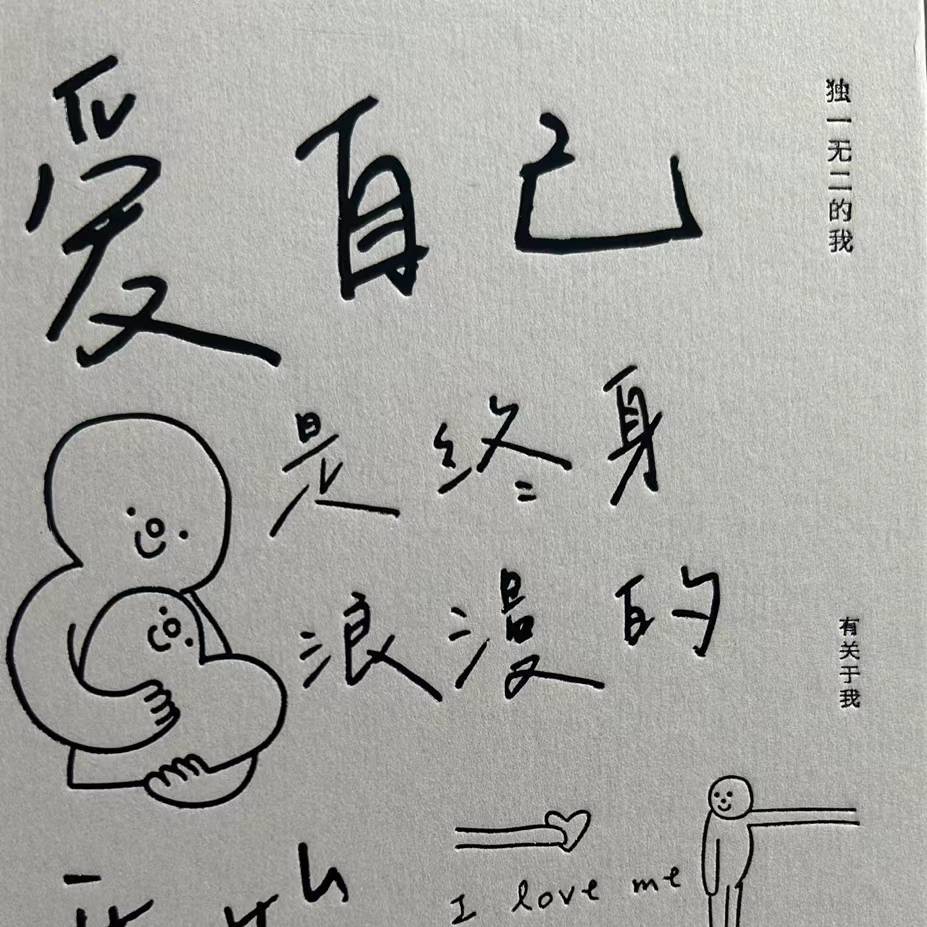 爱自己
是终身
浪漫的
独一无二的我
有关于我
I love me